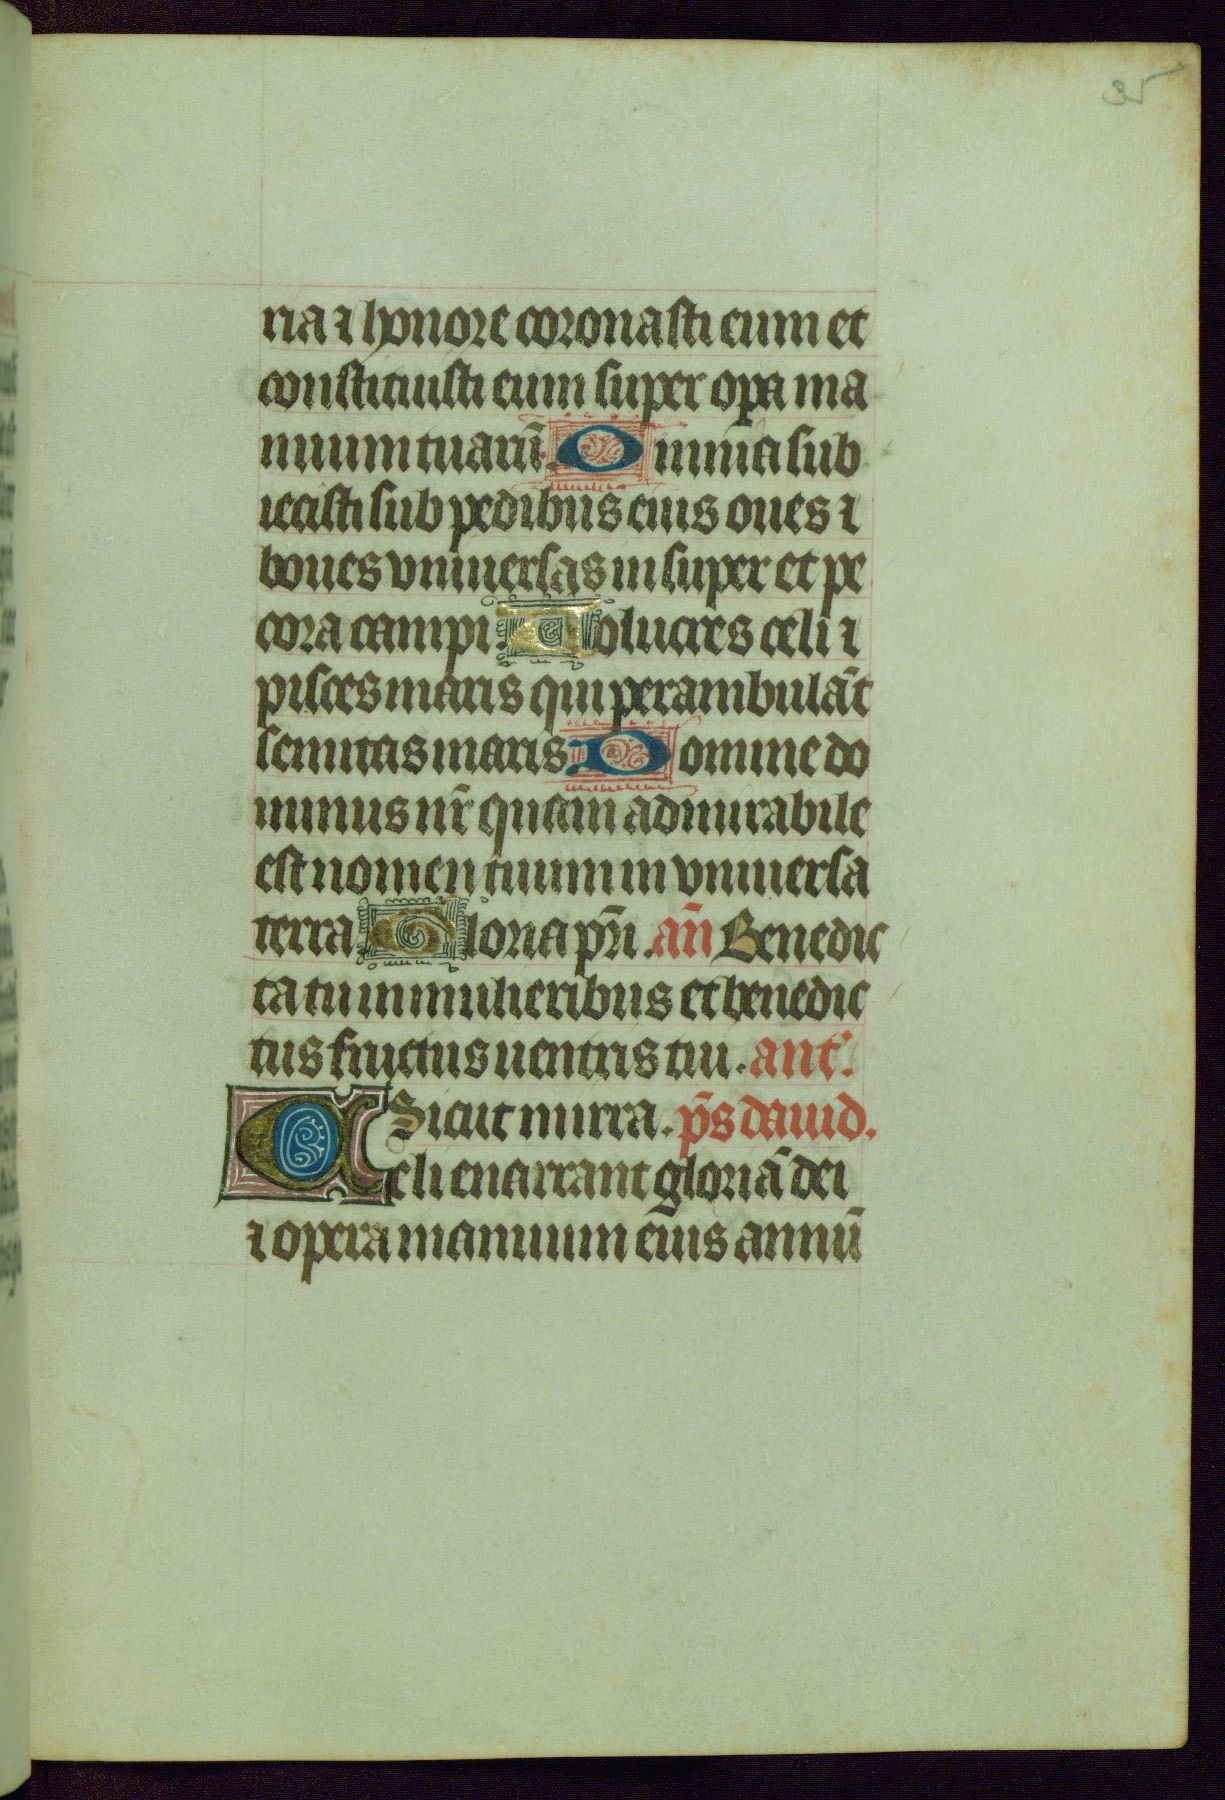 35
ria ⁊ honore coronasti eum et
constituisti eum super opa ma
nuum tuarū. Omnia sub
iecisti sub pedibus eius oues ⁊
boues vniuersas insuper et pe
cora campi. Uolucres celi ⁊
pisces maris qui perambulāt
semitas maris Domine do
minus nr̄ quam admirabile
est nomen tuum in vniuersa
terra Gloria pr̄i. an̄ Benedic
ta tu in mulieribus et benedic
tus fructus uentris tui. ant.
Sicut mirra. ps̄ dauid.
Celi enarrant gloriā dei
⁊ opera manuum eius annū